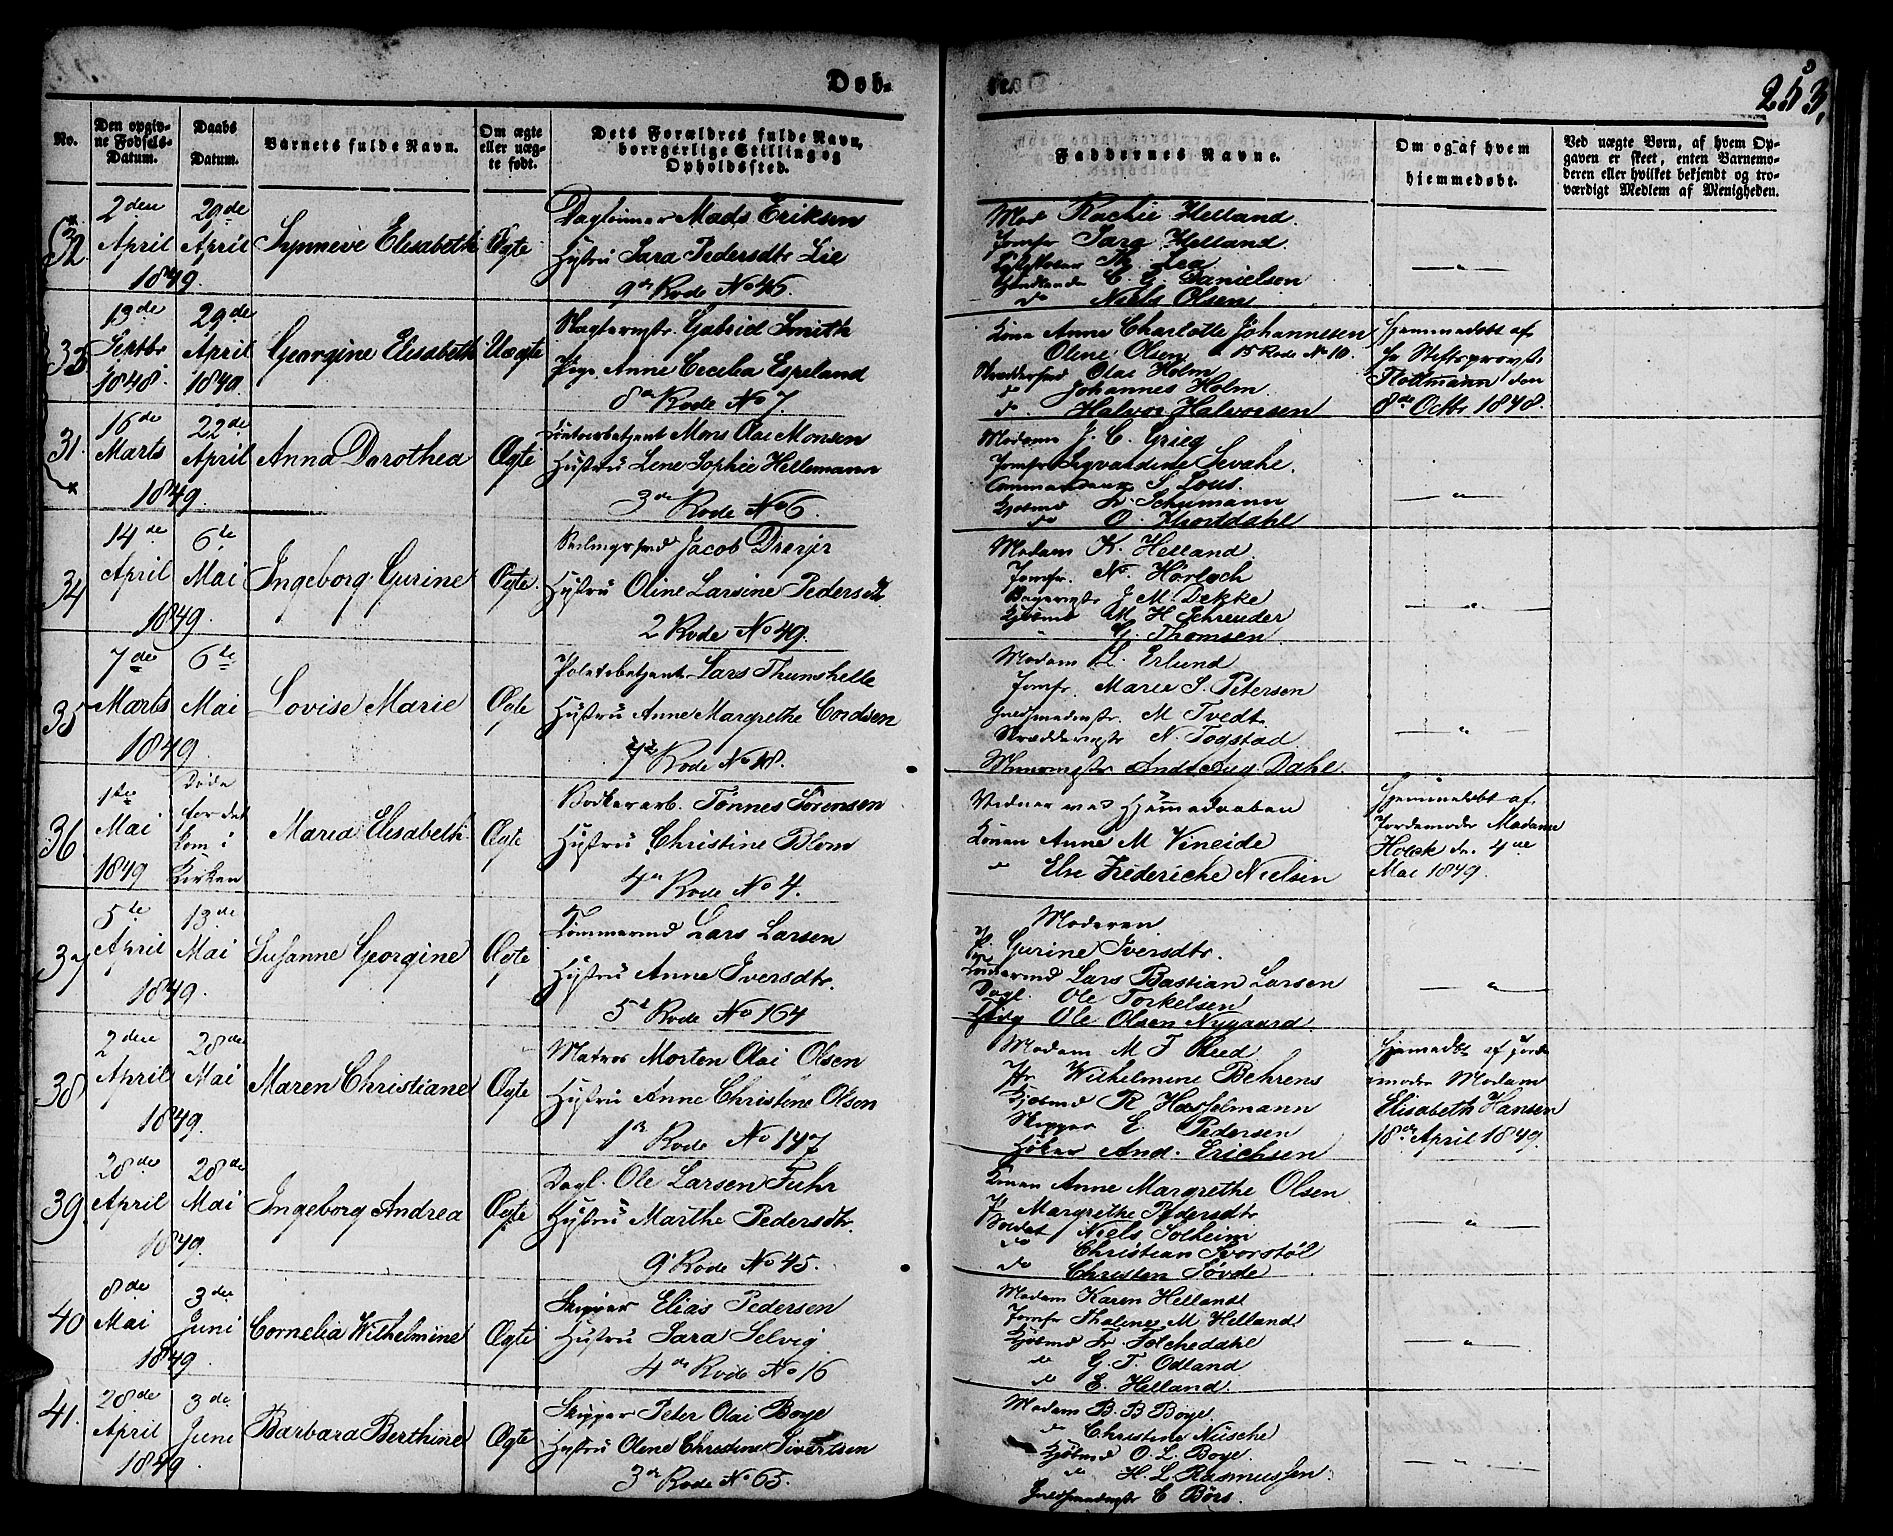 Døb-
253.
No.
Den opgiv-
ne Fødsels-
Datum.
Daabs
Datum.
Barnets fulde Navn.
Om ægte
eller uæg-
te født.
Dets Forældres fulde Navn,
borrgerlige Stilling og
Opholdssted.
Faddernes Navne.
Om og af hvem
hjemmedøbt.
Ved uægte Børn, af hvem Op-
gaven er skeet, enten Barnemo-
deren eller hvilket bekjendt og tro-
værdigt Medlem af Menigheden.
32
2den April 1849.
29de April
Synneve Elisabeth
Ægte
Dagleiner Mads Eriksen
Hustru Sara Pedersdtr Lie
9de Rode No 46.
Mad Rachie Helland.
Jomfr Sara Helland
Lea
C. G. Danielson
do Niels Olsen
— " —
33
13de Septbr 1848.
29de April 1849.
Georgine Elisabeth
Uægte
Slagtermstr. Gabriel Smith
Pige Anne Cecilia Espeland
8de Rode No 7.
Kone Anne Charlotte Johannesen
Oline Olsen 15 Rode No 10.
Olai Holm
do Johannes Holm
do Halvor Halvorsen
Hjemmedøbt af
Hr Stiftsprovst
den
8de Octbr 1848.
31.
16de Marts 1849.
22de April
Anna Dorothea
Ægte
Mons Olai Monsen
Hustru Lene Sophie Hellemann
3de Rode No 6.
Madame J. C. Grieg
Jomfr Sevahe.
S. Lous.
Kjøbmd Fr. Schumann
do O. Hjortdahl
— " —
34
14de April 1849.
6te Mai
Ingeborg Gurine
Ægte.
Jacob Dreyer
Hustru Oline Larsine Pedersdt.
2 Rode No 49.
Madam K. Helland.
Jomfr. N. Hörloch
Bagermstr J. M. Dekke
Kjøbmd M. H. Schreuder
" G. Thomsen
— " —
35
7de Marts 1849
6te Mai
Lovise Marie
Ægte
Politibetjent Lars Thunshelle
Hustru Anne Margrethe Cordsen
7de Rode No 18.
Madam L. Erlund
Jomfr. Maree S. Petersen
Guldsmedmstr. M Tvedt
Skræddermstr N. Togstad
And. Aug. Dahl.
— " —
36
1ste Mai 1849
Døde
for det
kom i
Kirken
Maria Elisabeth
Ægte
Bødkerarb. Tönnes Sörensen
Hustru Christine Blom
4de Rode No 4.
Vidner ved Hjemmedaaben
Konen Anne M Vineide
do Else Frederiche Nielsen
Hjemmedøbt af
Jordemoder Madame
Holck den 4de
Mai 1849.
37
5te April 1849.
13de Mai
Susanne Georgine
Ægte
Tömmermd Lars Larsen
Hustru Anne Iversdtr.
5te Rode No 164
Moderen
P. Gurine Iversdtr.
Tømmermd Lars Bastian Larsen
Dagl. Ole Torkelsen
Ole Olsen Nygaard
— " —
38
2den April 1849.
28de Mai
Maren Christiane
Ægte
Matros Morten Olai Olsen
Hustru Anne Christine Olson
1ste Rode No 147
Madam M F Reed
Jfr Wilhelmine Behrens
Kjøbmd R Hasselmann
Skipper E. Pedersen
Høker And. Erichsen
Hjemmedøbt af Jorde-
moder Madam
Elisabeth Hansen
18de April 1849.
39.
28de April 1849.
28de Mai
Ingeborg Andrea
Ægte
Dagl. Ole Larsen Fuhr
Hustru Marthe Pedersdtr.
9de Rode No 45.
Konen Anne Margrethe Olsen
P. Margrethe Pedersdtr
Soldat Niels Solheim
do Christian Svorstöl
do Christen Sövde
— " —
40
8de Mai 1849.
3die Juni
Cornelia Wilhelmine
Ægte
Skipper Elias Pedersen
Hustru Sara Selvig
4de Rode No 16
Madam Karen Helland
Jomfr Thaline M. Helland
Kjøbmd Fr. Folchedahl
do G. T. Odland
do E. Helland.
— " —
41.
28de April 1849.
3de Juni
Barbara Berthine
Ægte
Skipper Peter Olai Boye
Hustru Olene Christine Sivertsen
3de Rode No 63.
Madam B. B Boye.
do Christine Nüsche
Kjøbmd O. L. Boye.
do H. L. Rasmussen
Guldsmedmstr C Börs.
— " —